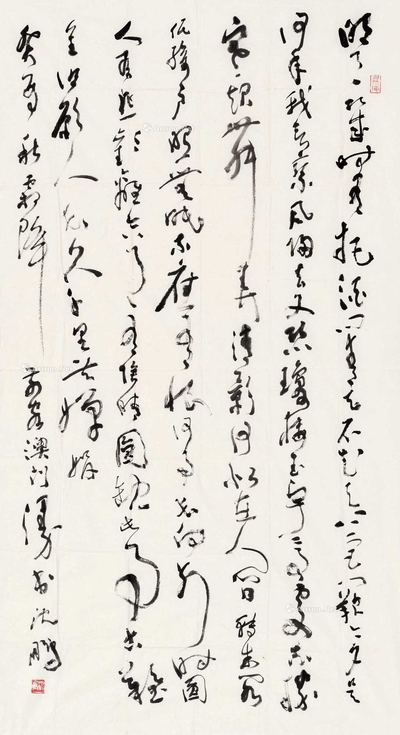 明月几时有把酒问青天不知天上宫阙今夕是
何年我欲乘风归去又恐琼楼玉宇高处不胜
寒起舞弄清影何似在人间转朱阁
低绮户照无眠不应有恨何事长向别时圆
人有悲欢离合月有阴晴圆缺此事古难
全但愿人长久千里共婵娟
秋霜降 客澳门 沈鹏